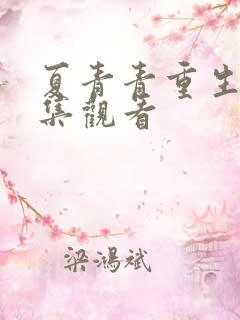 夏青青重生
集觀看
梁鴻斌